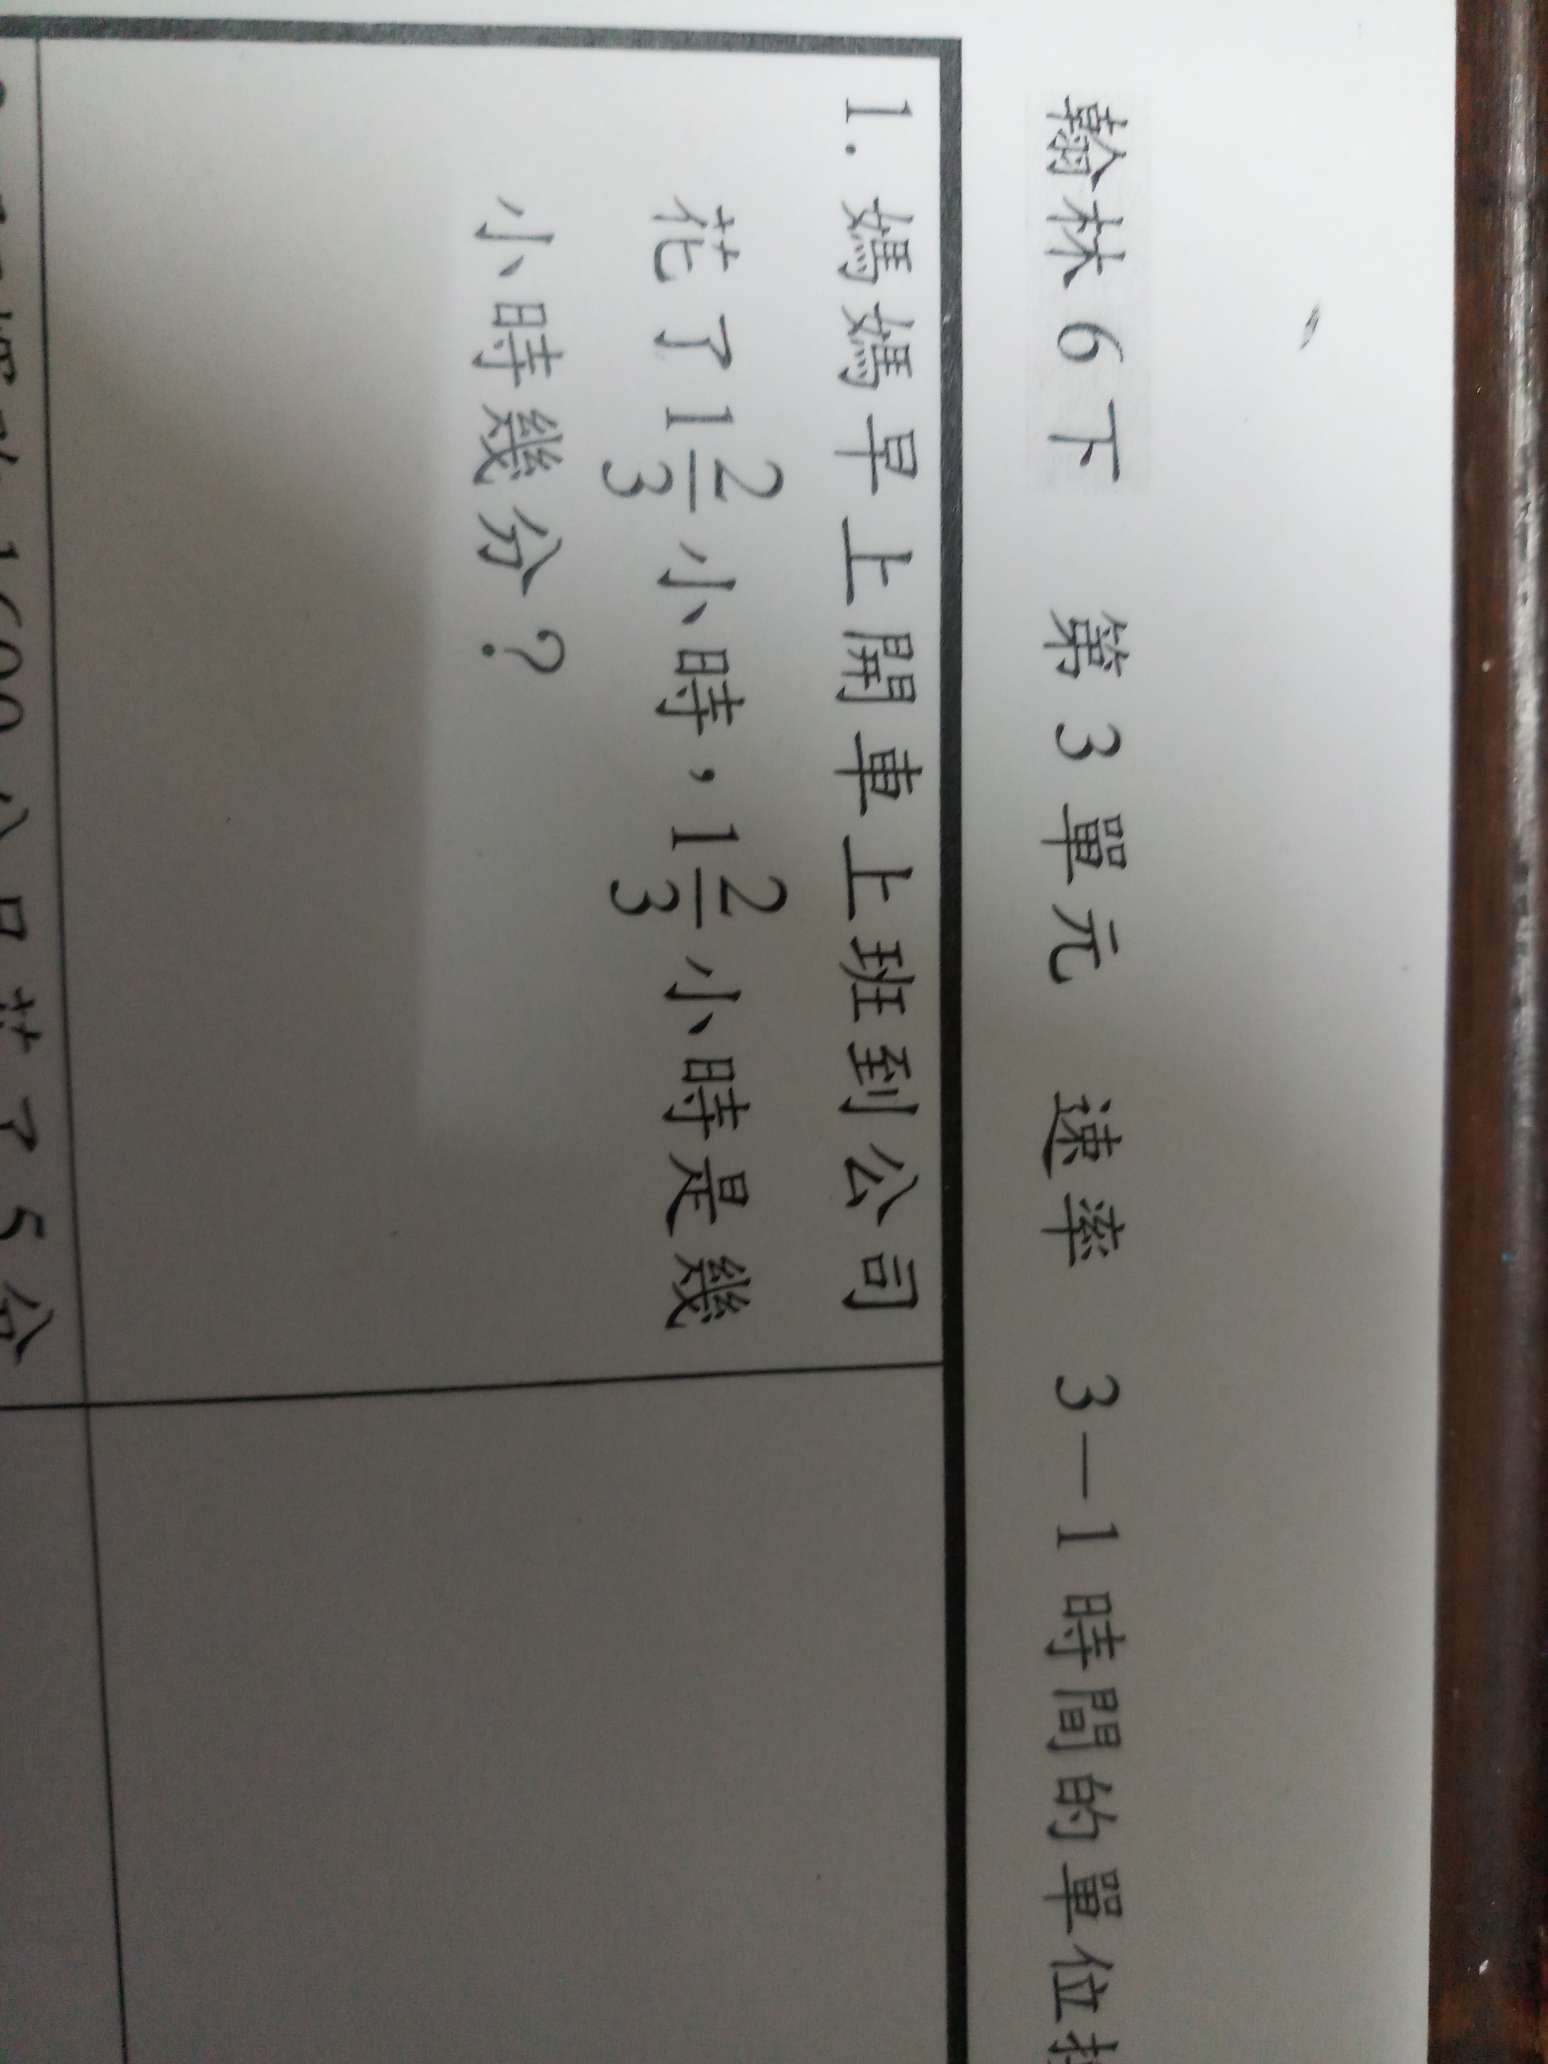 翰林6下 第3單元 速率 3－1時間的單位
1. 媽媽早上開車上班到公司
花了1 2/3 小時，1 2/3 小時是幾
小時幾分？
1600公尺花了5分